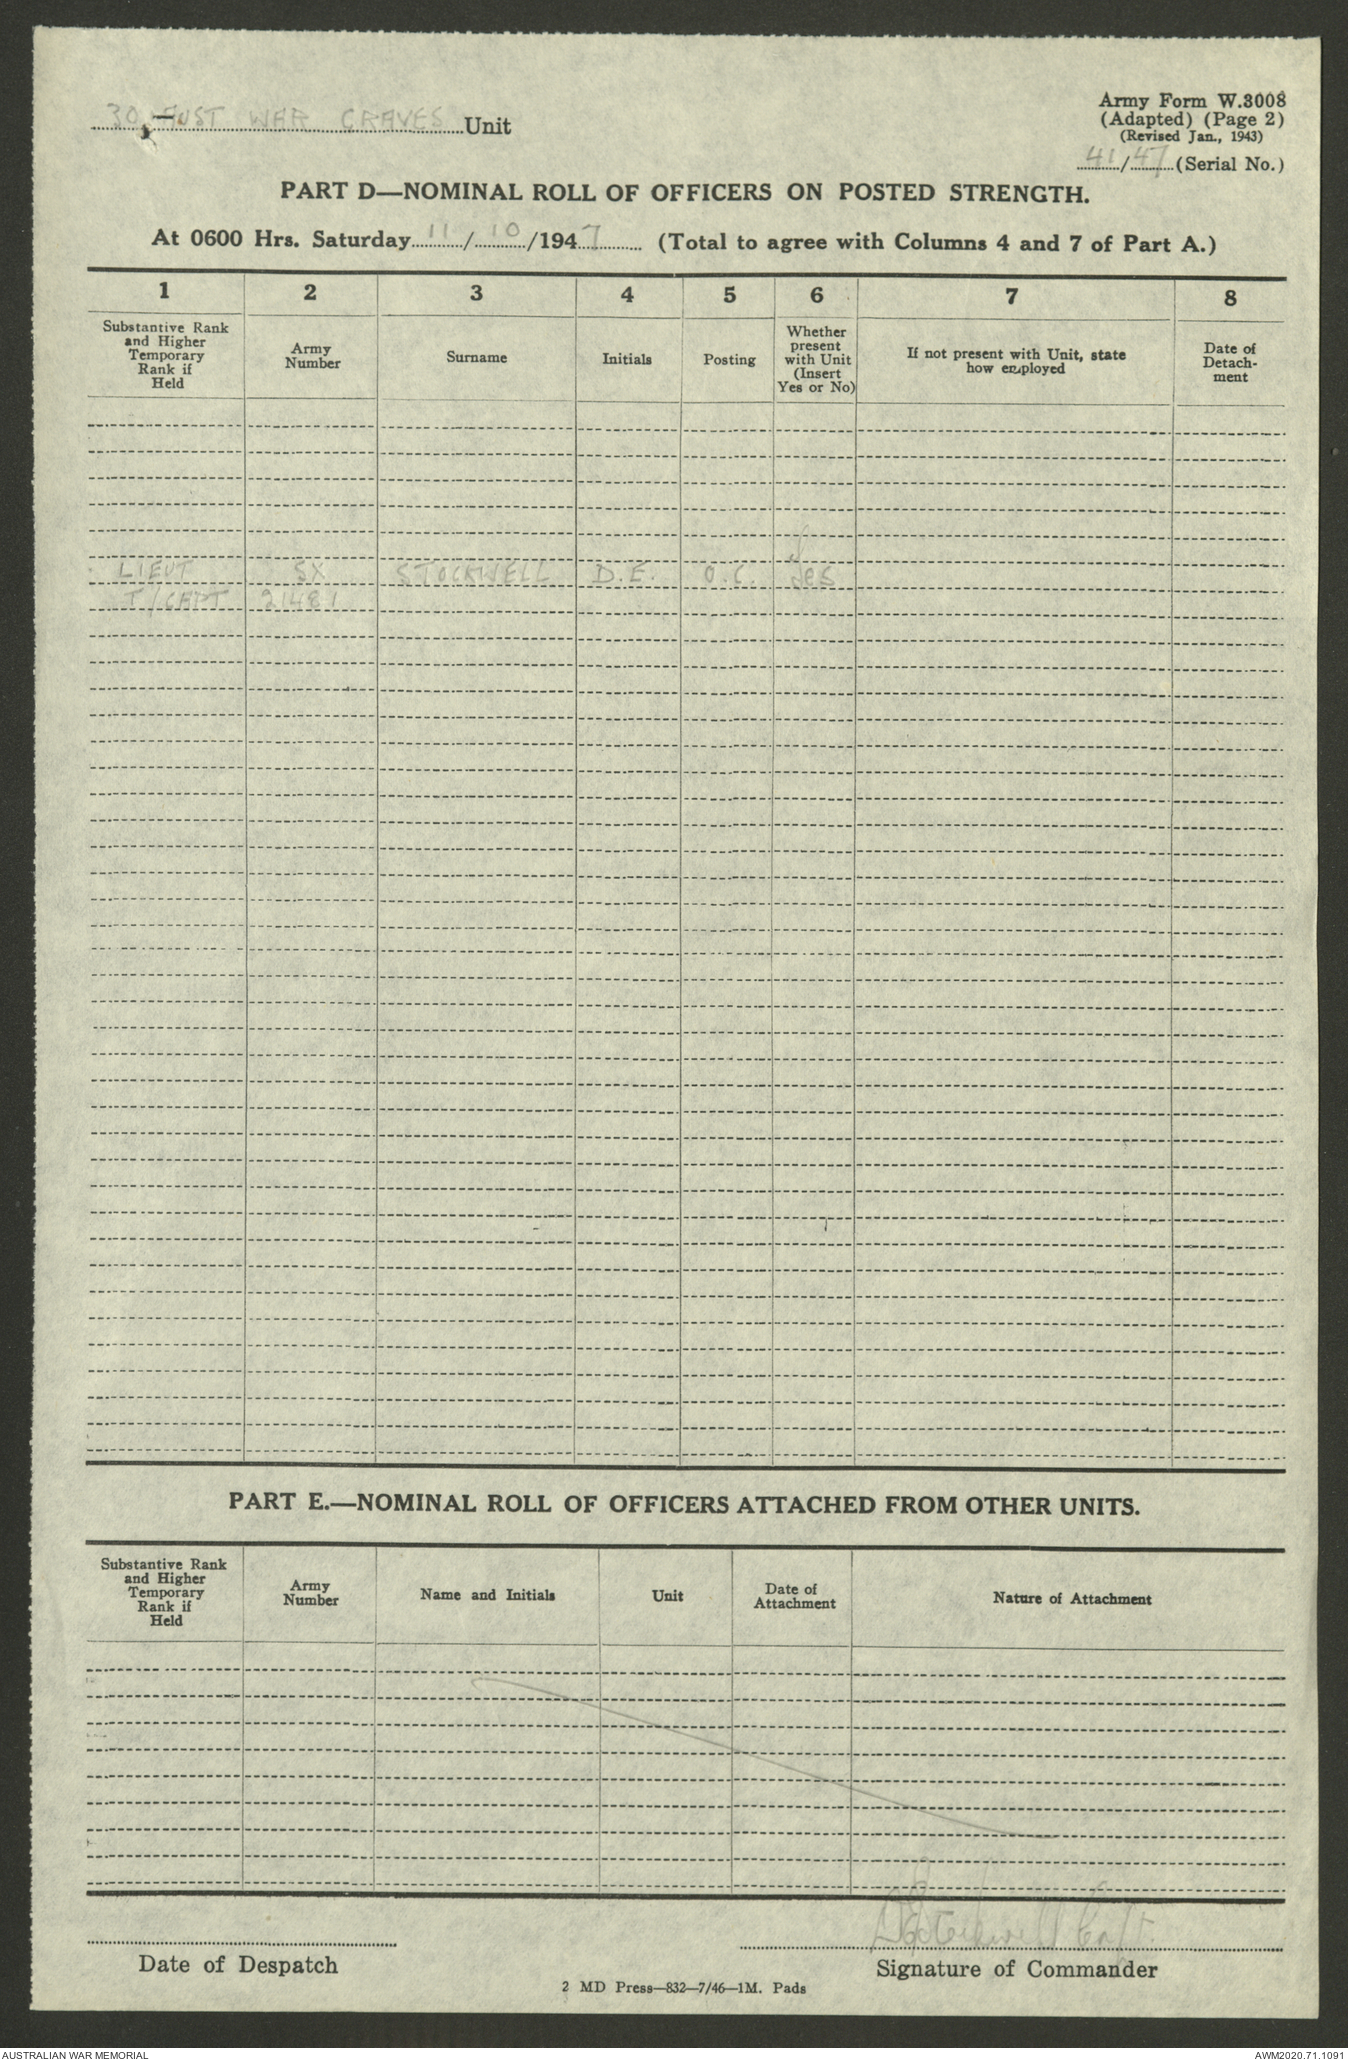 30 AUST WAR GRAVES Unit
Army Form W.3008
(Adapted) (Page 2)
(Revised Jan., 1943)
41/47 (Serial No.)
PART D—NOMINAL ROLL OF OFFICERS ON POSTED STRENGTH.
At 0600 Hrs. Saturday 11/10/1947 (Total to agree with Columns 4 and 7 of Part A.)
1 2 3 4 5 6 7 8
Substantive Rank
and Higher
Temporary
Rank if
Held
Army
Number
Surname
Initials
Posting
Whether
present
with Unit
(Insert
Yes or No)
If not present with Unit, state
how employed
Date of
Detach-
ment
LIEUT SX STOCKWELL D.E. O.C. Yes
T/CAPT 21481
PART E.—NOMINAL ROLL OF OFFICERS ATTACHED FROM OTHER UNITS.
Substantive Rank
and Higher
Temporary
Rank if
Held
Army
Number
Name and Initials
Unit
Date of
Attachment
Nature of Attachment
DEStockwell Capt.
Date of Despatch
Signature of Commander
2 MD Press—832—7/46—1M. Pads
AUSTRALIAN WAR MEMORIAL
AWM2020.71.1091